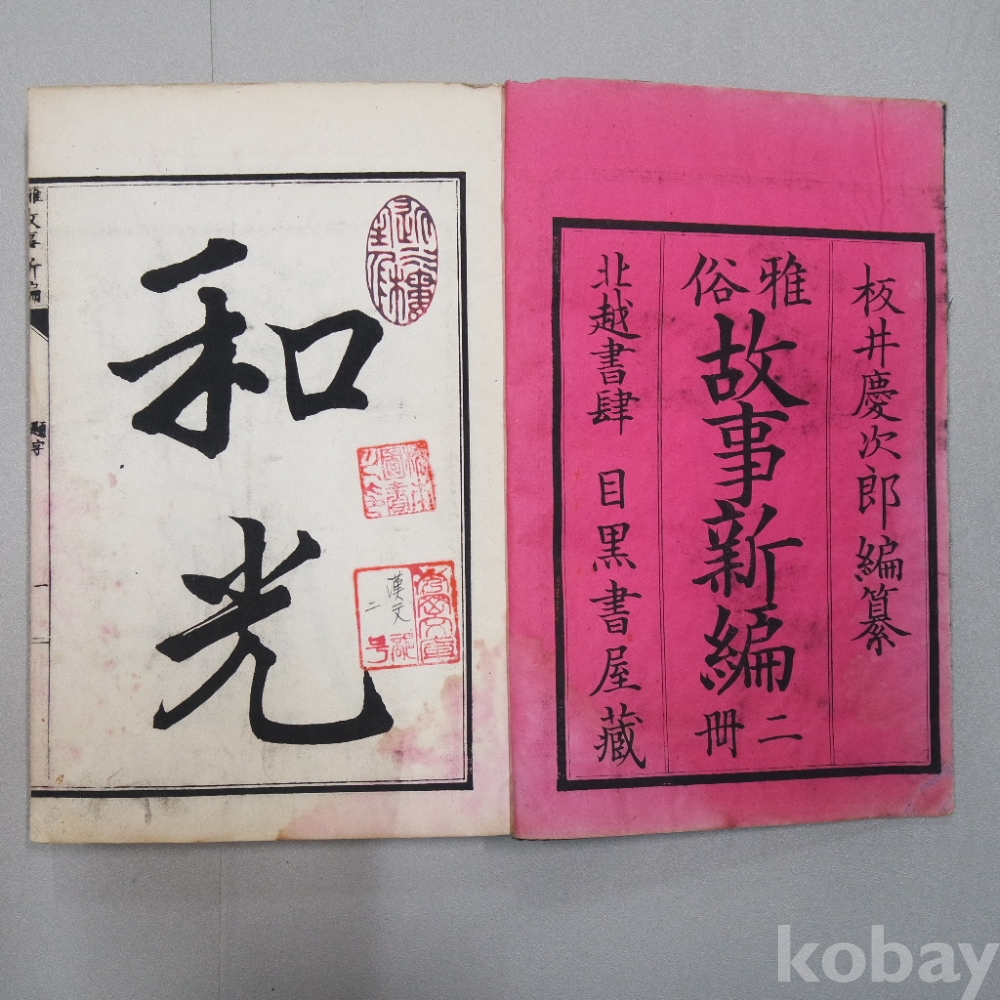 板井慶次郎編纂
雅俗
故事新編
二冊
北越書肆 目黒書屋藏
和光
漢文
二
号
雅
故事新編
題字
一
kobay